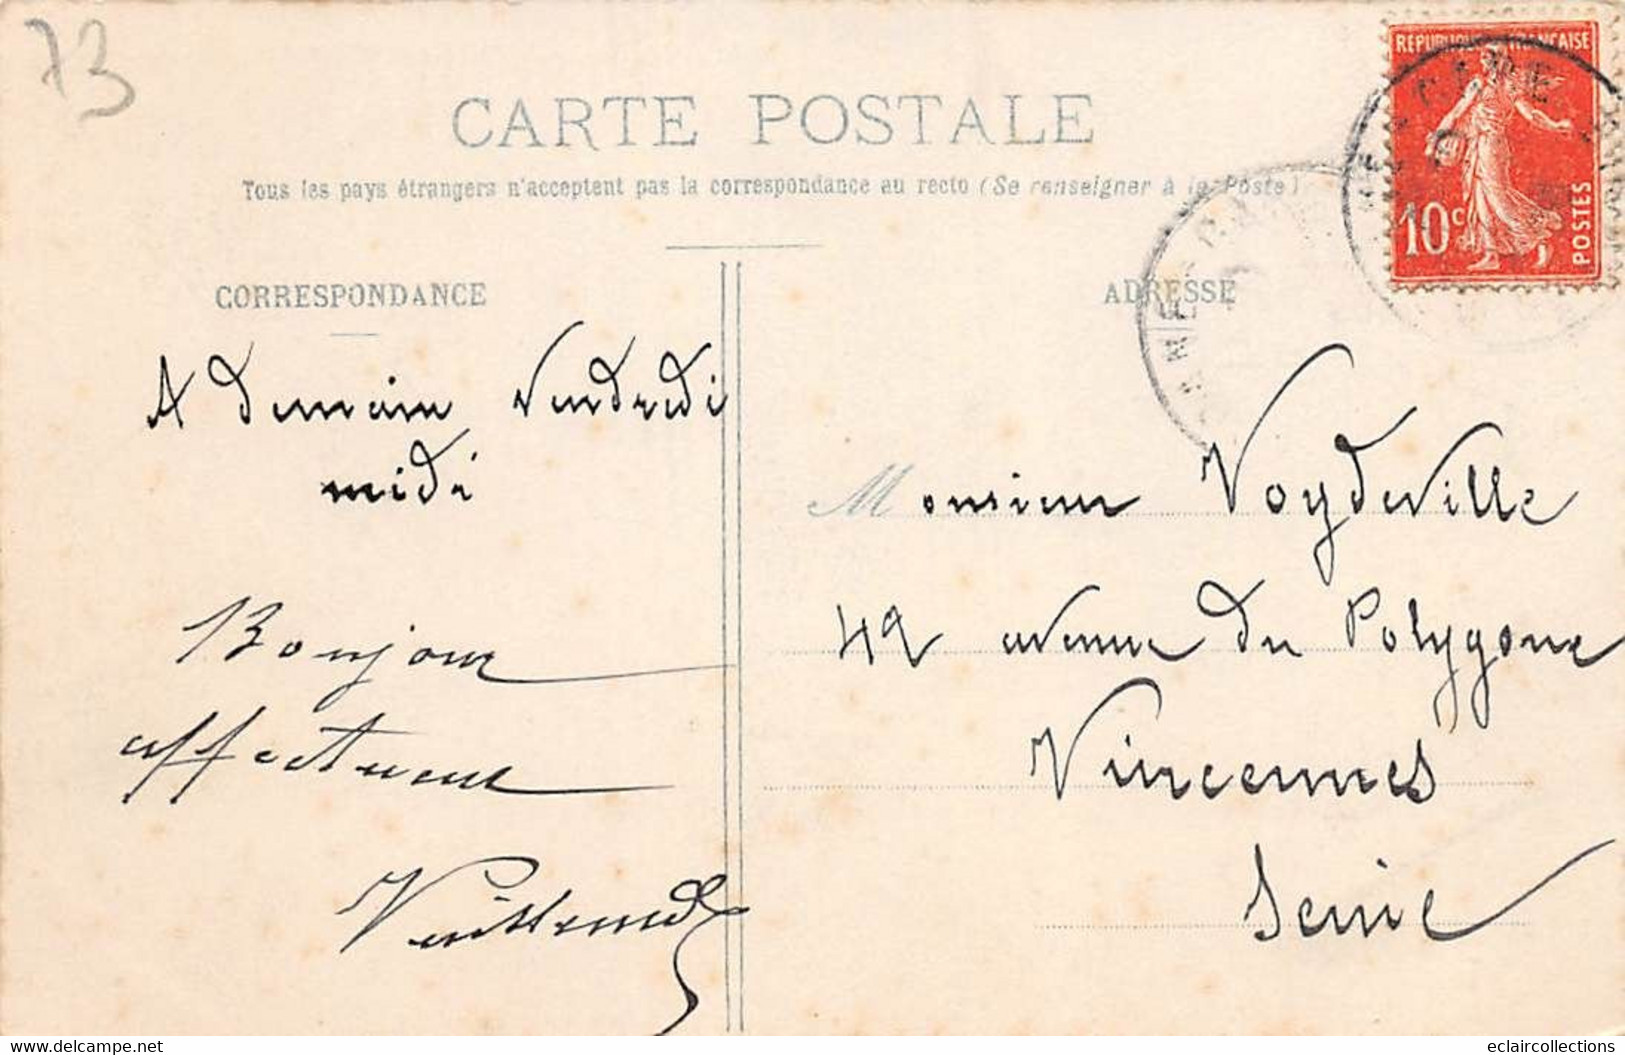 73
CARTE POSTALE
Tous les pays étrangers n'acceptent pas la correspondance au recto (Se renseigner à la Poste)
REPUBLIQUE FRANÇAISE
10c POSTES
CORRESPONDANCE
A demain Vendredi
midi
Bonjour
affectueux
ADRESSE
Monsieur Voydeville
42 avenue du Polygone
Vincennes
Seine
www.delcampe.net
eclaircollections